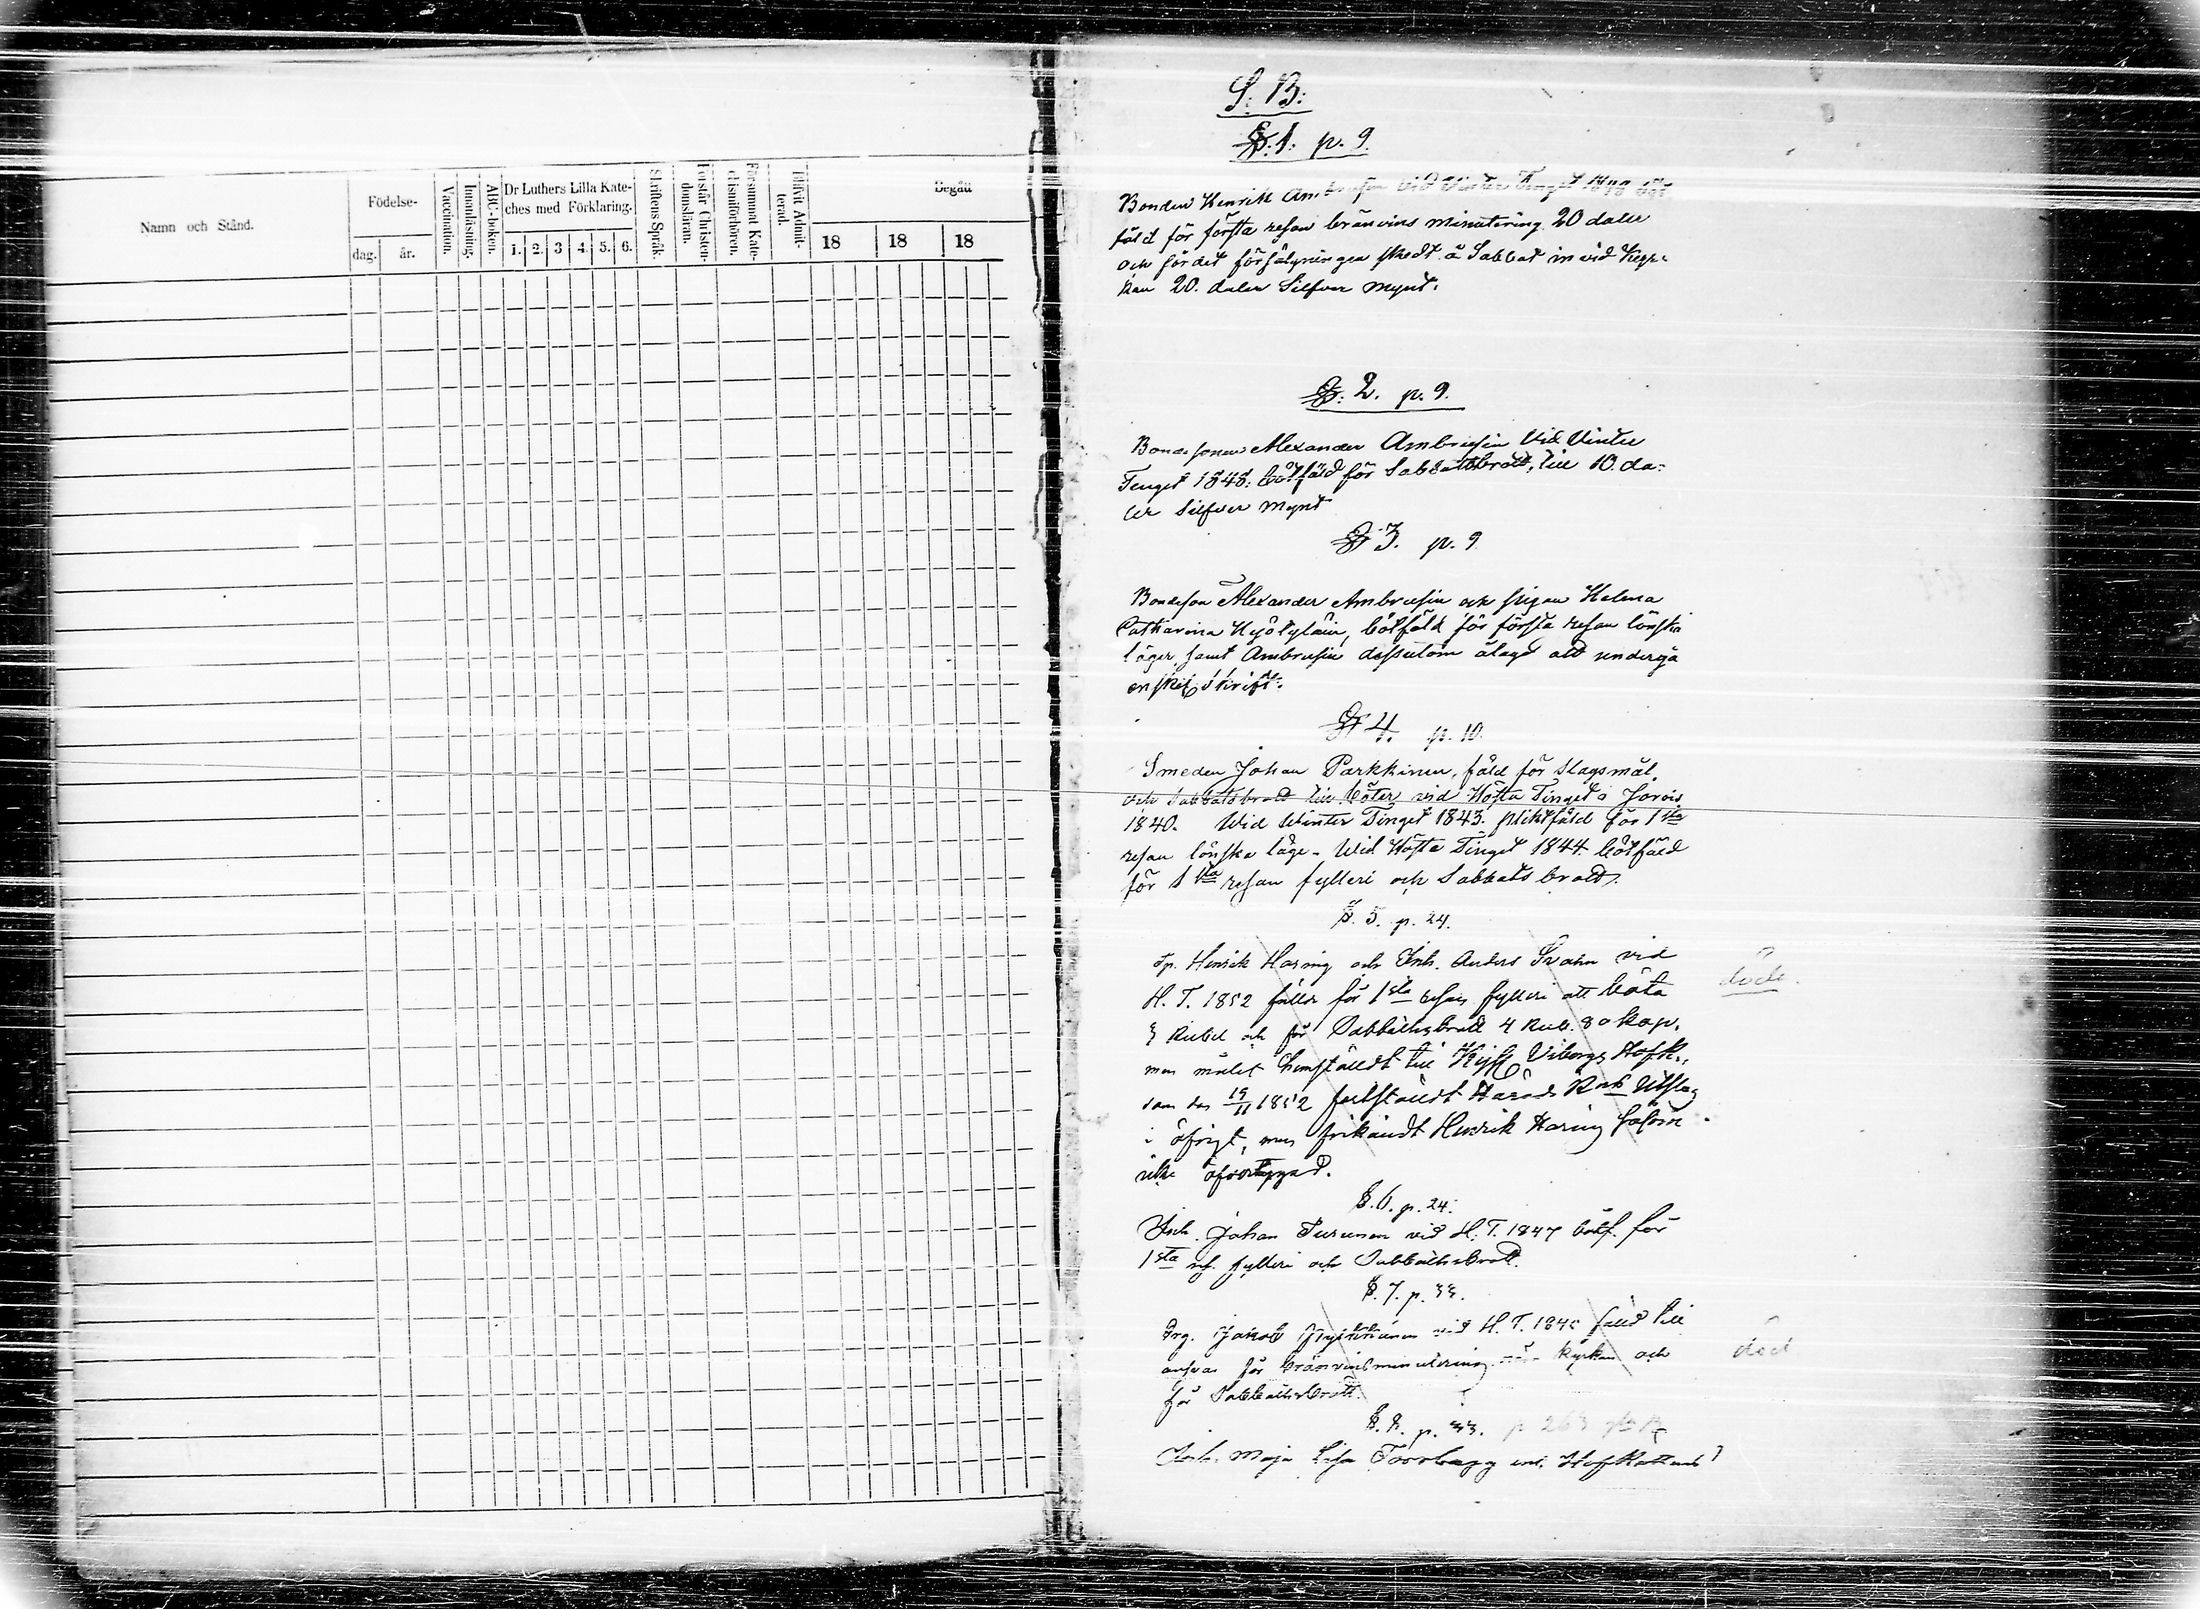 Namn och Stånd.
Födelse-
dag. år.
Vaccination.
Innanläsning.
ABC-boken.
Dr Luthers Lilla Kate-
ches med Förklaring.
1. 2. 3 4. 5. 6.
Skriftens Språk.
Förstår Christen-
domsläran.
Försummat Kate-
chismiförhören.
Blifvit Admit-
terad.
Begått
18 18 18
S: B:
§: 1: p. 9.
Bonden Henrik Ambrusin vid Vinter Tinget 1848 böt
fäld för första resan bränvins minutering 20 daler
och för det försälgningen skedt å Sabbat in vid Kyr-
kan 20. daler Silfver mynt.
§: 2. p. 9.
Bondesonen Alexander Ambrusin vid Vinter
Tinget 1848: bötfäld för Sabbatsbrott, till 10. da-
ler Silfver mynt
§ 3. p. 9
Bondeson Alexander Ambrusin och pigan Helena
Catharina, bötfäld för första resan lönska
läger, samt Ambrusin dessutom ålagd att undergå
enskilt skrift:
§ 4. p. 10.
Smeden Johan Parkkinen, fäld för slagsmål
och Sabbatsbrott till böter vid Hösta Tinget i Jorois
1840. Wid Winter Tinget 1843. pliktfäld för 1sta
resan lönska läge- Wid Hösta Tinget 1844 bötfäld
för 1sta resan fylleri och Sabbats brott.
§. 5. p. 24.
Henrik Haring och Inh. Anders vid
H. T. 1852 fällde för 1sta resan fylleri att böta
Rubel och för Sabbathsbrott 4 Rub. 80 kop.
men målet hemstäldt till Viborgs Hofr.,
som den 19/11 1852 fastställdt Härads Rätts Utslag
i öfrigt, men frikändt Henrik Haring såsom
icke öfvertygad.
döde.
§. 6. p. 24.
Inh. Johan Turunen vid H. T. 1847 bötf. för
1sta rs. fylleri och Sabbathsbrott.
§. 7. p. 33.
Jakob vid H. T. 1845 fälld till
ansvar för bränvinsminutering när kyrkan och
för Sabbathsbrott.
död
§. 8. p. 33. p 263
Inh. Maja Lisa